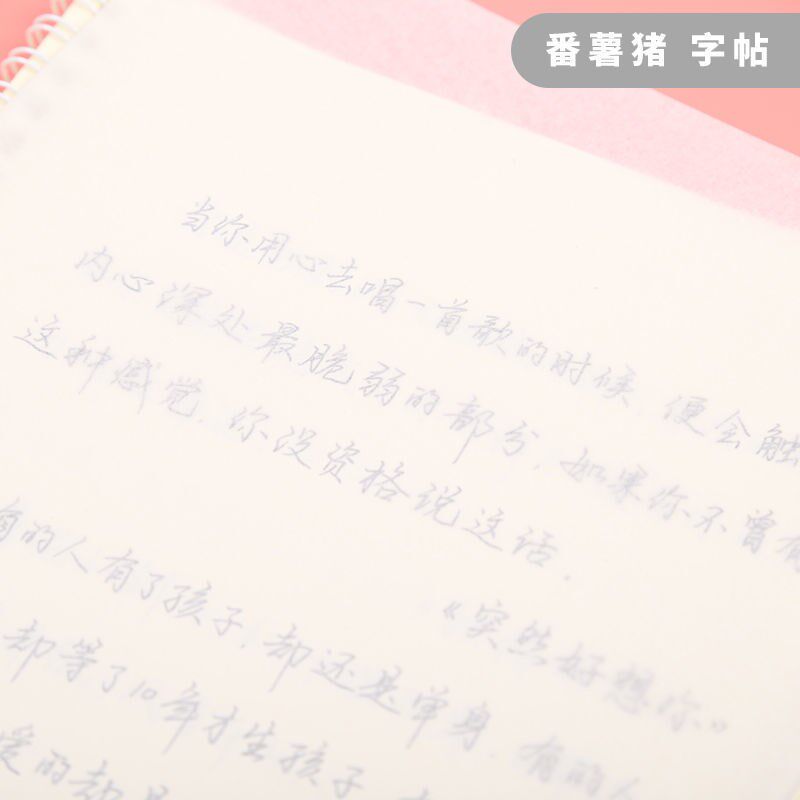 番薯猪 字帖
当你用心去唱一首歌的时候，便会触
内心深处最脆弱的部分，如果你不曾有
这种感觉，你没资格说这话．
《突然好想你》
的人有了孩子，却还是单身．有的人
却等了10年才生孩子
爱的却是